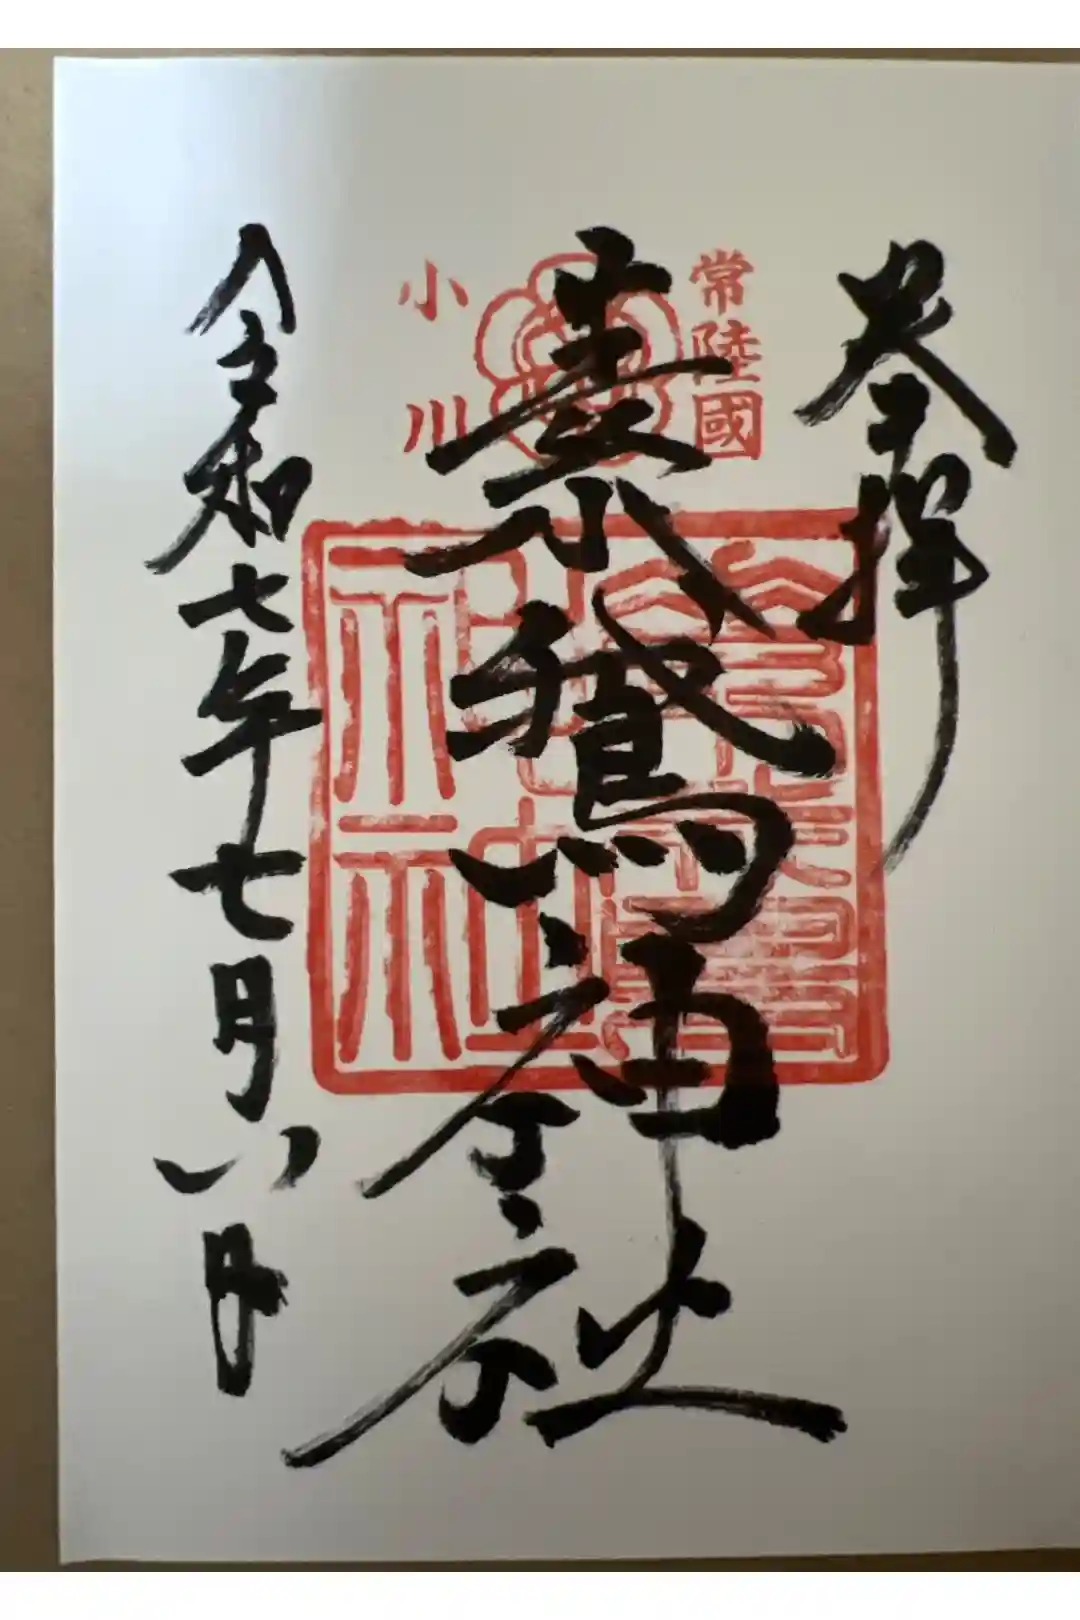 奉拝
常陸國
素鵞神社
小川
令和七年七月八日